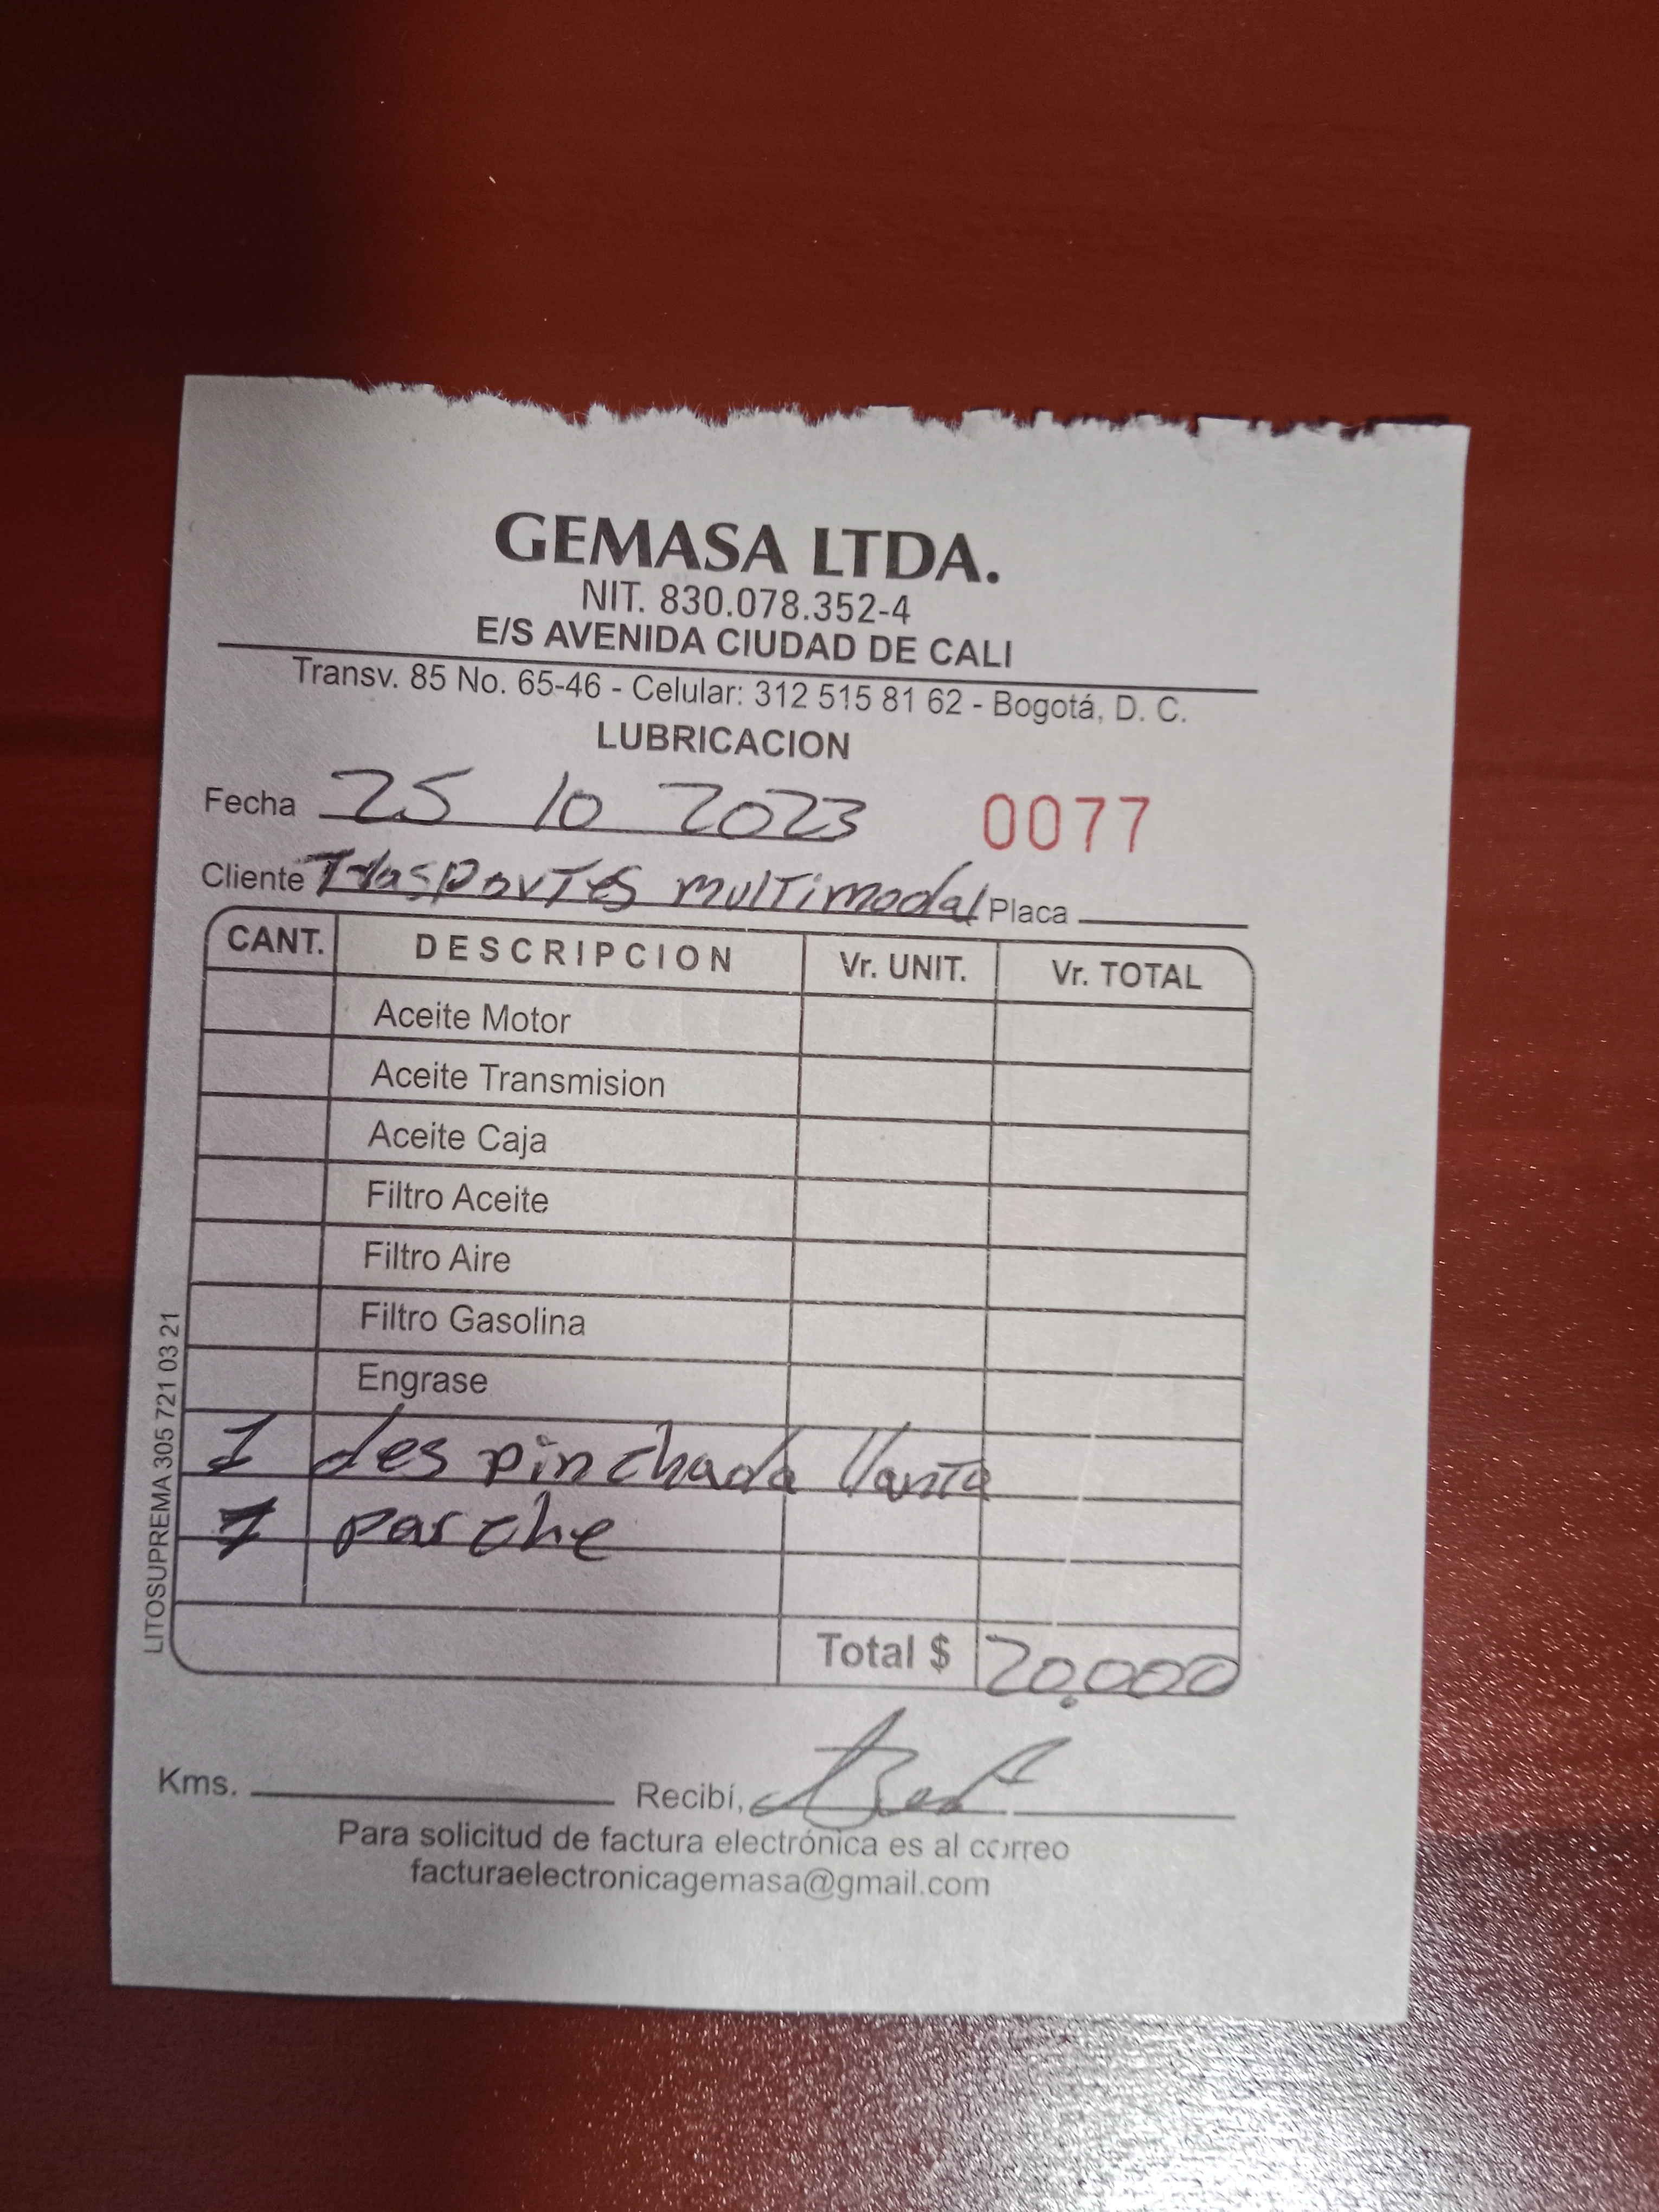 GEMASA LTDA.
NIT. 830.078.352-4
E/S AVENIDA CIUDAD DE CALI
Transv. 85 No. 65-46 - Celular: 312 515 81 62 - Bogotá, D. C.
LUBRICACION
Fecha 25 10 2023 0077
Cliente Trasportes multimodal Placa
CANT. DESCRIPCION Vr. UNIT. Vr. TOTAL
Aceite Motor
Aceite Transmision
Aceite Caja
Filtro Aceite
Filtro Aire
Filtro Gasolina
Engrase
1 des pinchada llanta
1 parche
Total $ 20.000
Kms. Recibí,
Para solicitud de factura electrónica es al correo
facturaelectronicagemasa@gmail.com
LITOSUPREMA 305 721 03 21